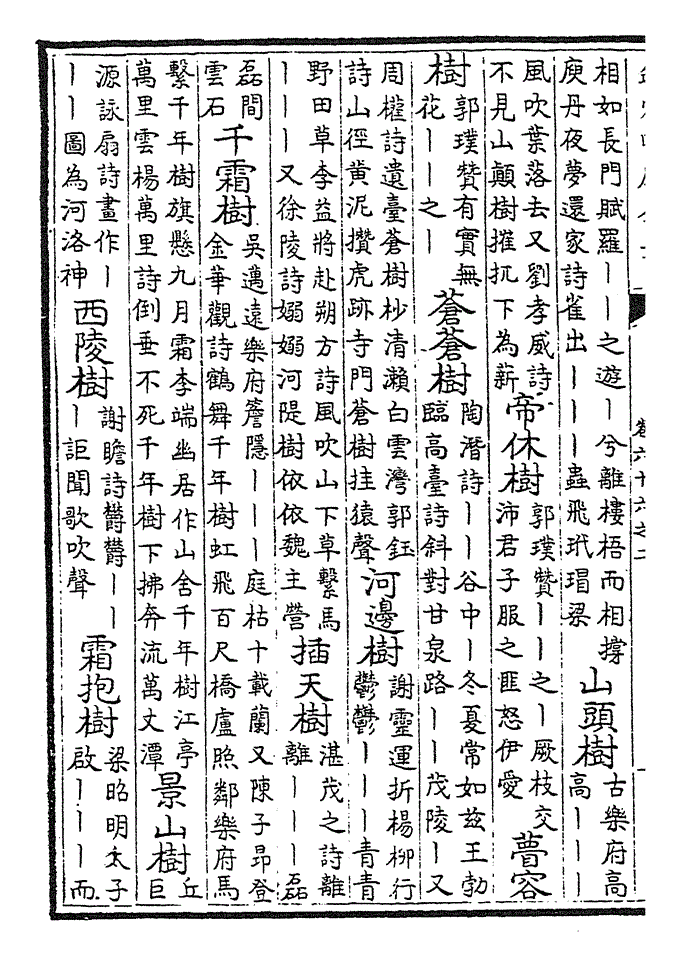 卷六十六之二
相如長門賦羅丨丨之遊丨兮離樓梧而相撐
庾丹夜夢還家詩雀出丨丨丨蟲飛玳瑁梁
山頭樹
古樂府高
高丨丨丨
風吹葉落去又劉孝威詩
不見山巔樹摧扤下為薪
帝休樹
郭璞贊丨丨之丨厥枝交
沛君子服之匪怒伊愛
瞢容
樹
郭璞贊有實無
花丨丨之丨
蒼蒼樹
陶潛詩丨丨谷中丨冬夏常如兹王勃
臨高臺詩斜對甘泉路丨丨茂陵丨又
周權詩遺臺蒼樹杪清瀨白雲灣郭鈺
詩山徑黄泥攢虎跡寺門蒼樹挂猿聲
河邊樹
謝靈運折楊柳行
鬱鬱丨丨丨青青
野田草李益將赴朔方詩風吹山下草繫馬
丨丨丨又徐陵詩嫋嫋河隄樹依依魏主營
插天樹
湛茂之詩離
離丨丨丨磊
磊間
雲石
千霜樹
吳邁遠樂府簷隱丨丨丨庭枯十載蘭又陳子昻登
金華觀詩鶴舞千年樹虹飛百尺橋盧照鄰樂府馬
繫千年樹旗懸九月霜李端幽居作山舍千年樹江亭
萬里雲楊萬里詩倒垂不死千年樹下拂奔流萬丈潭
景山樹
丘
巨
源詠扇詩畫作丨
丨丨圖為河洛神
西陵樹
謝瞻詩鬱鬱丨丨
丨詎聞歌吹聲
霜抱樹
梁昭明太子
啟丨丨丨而